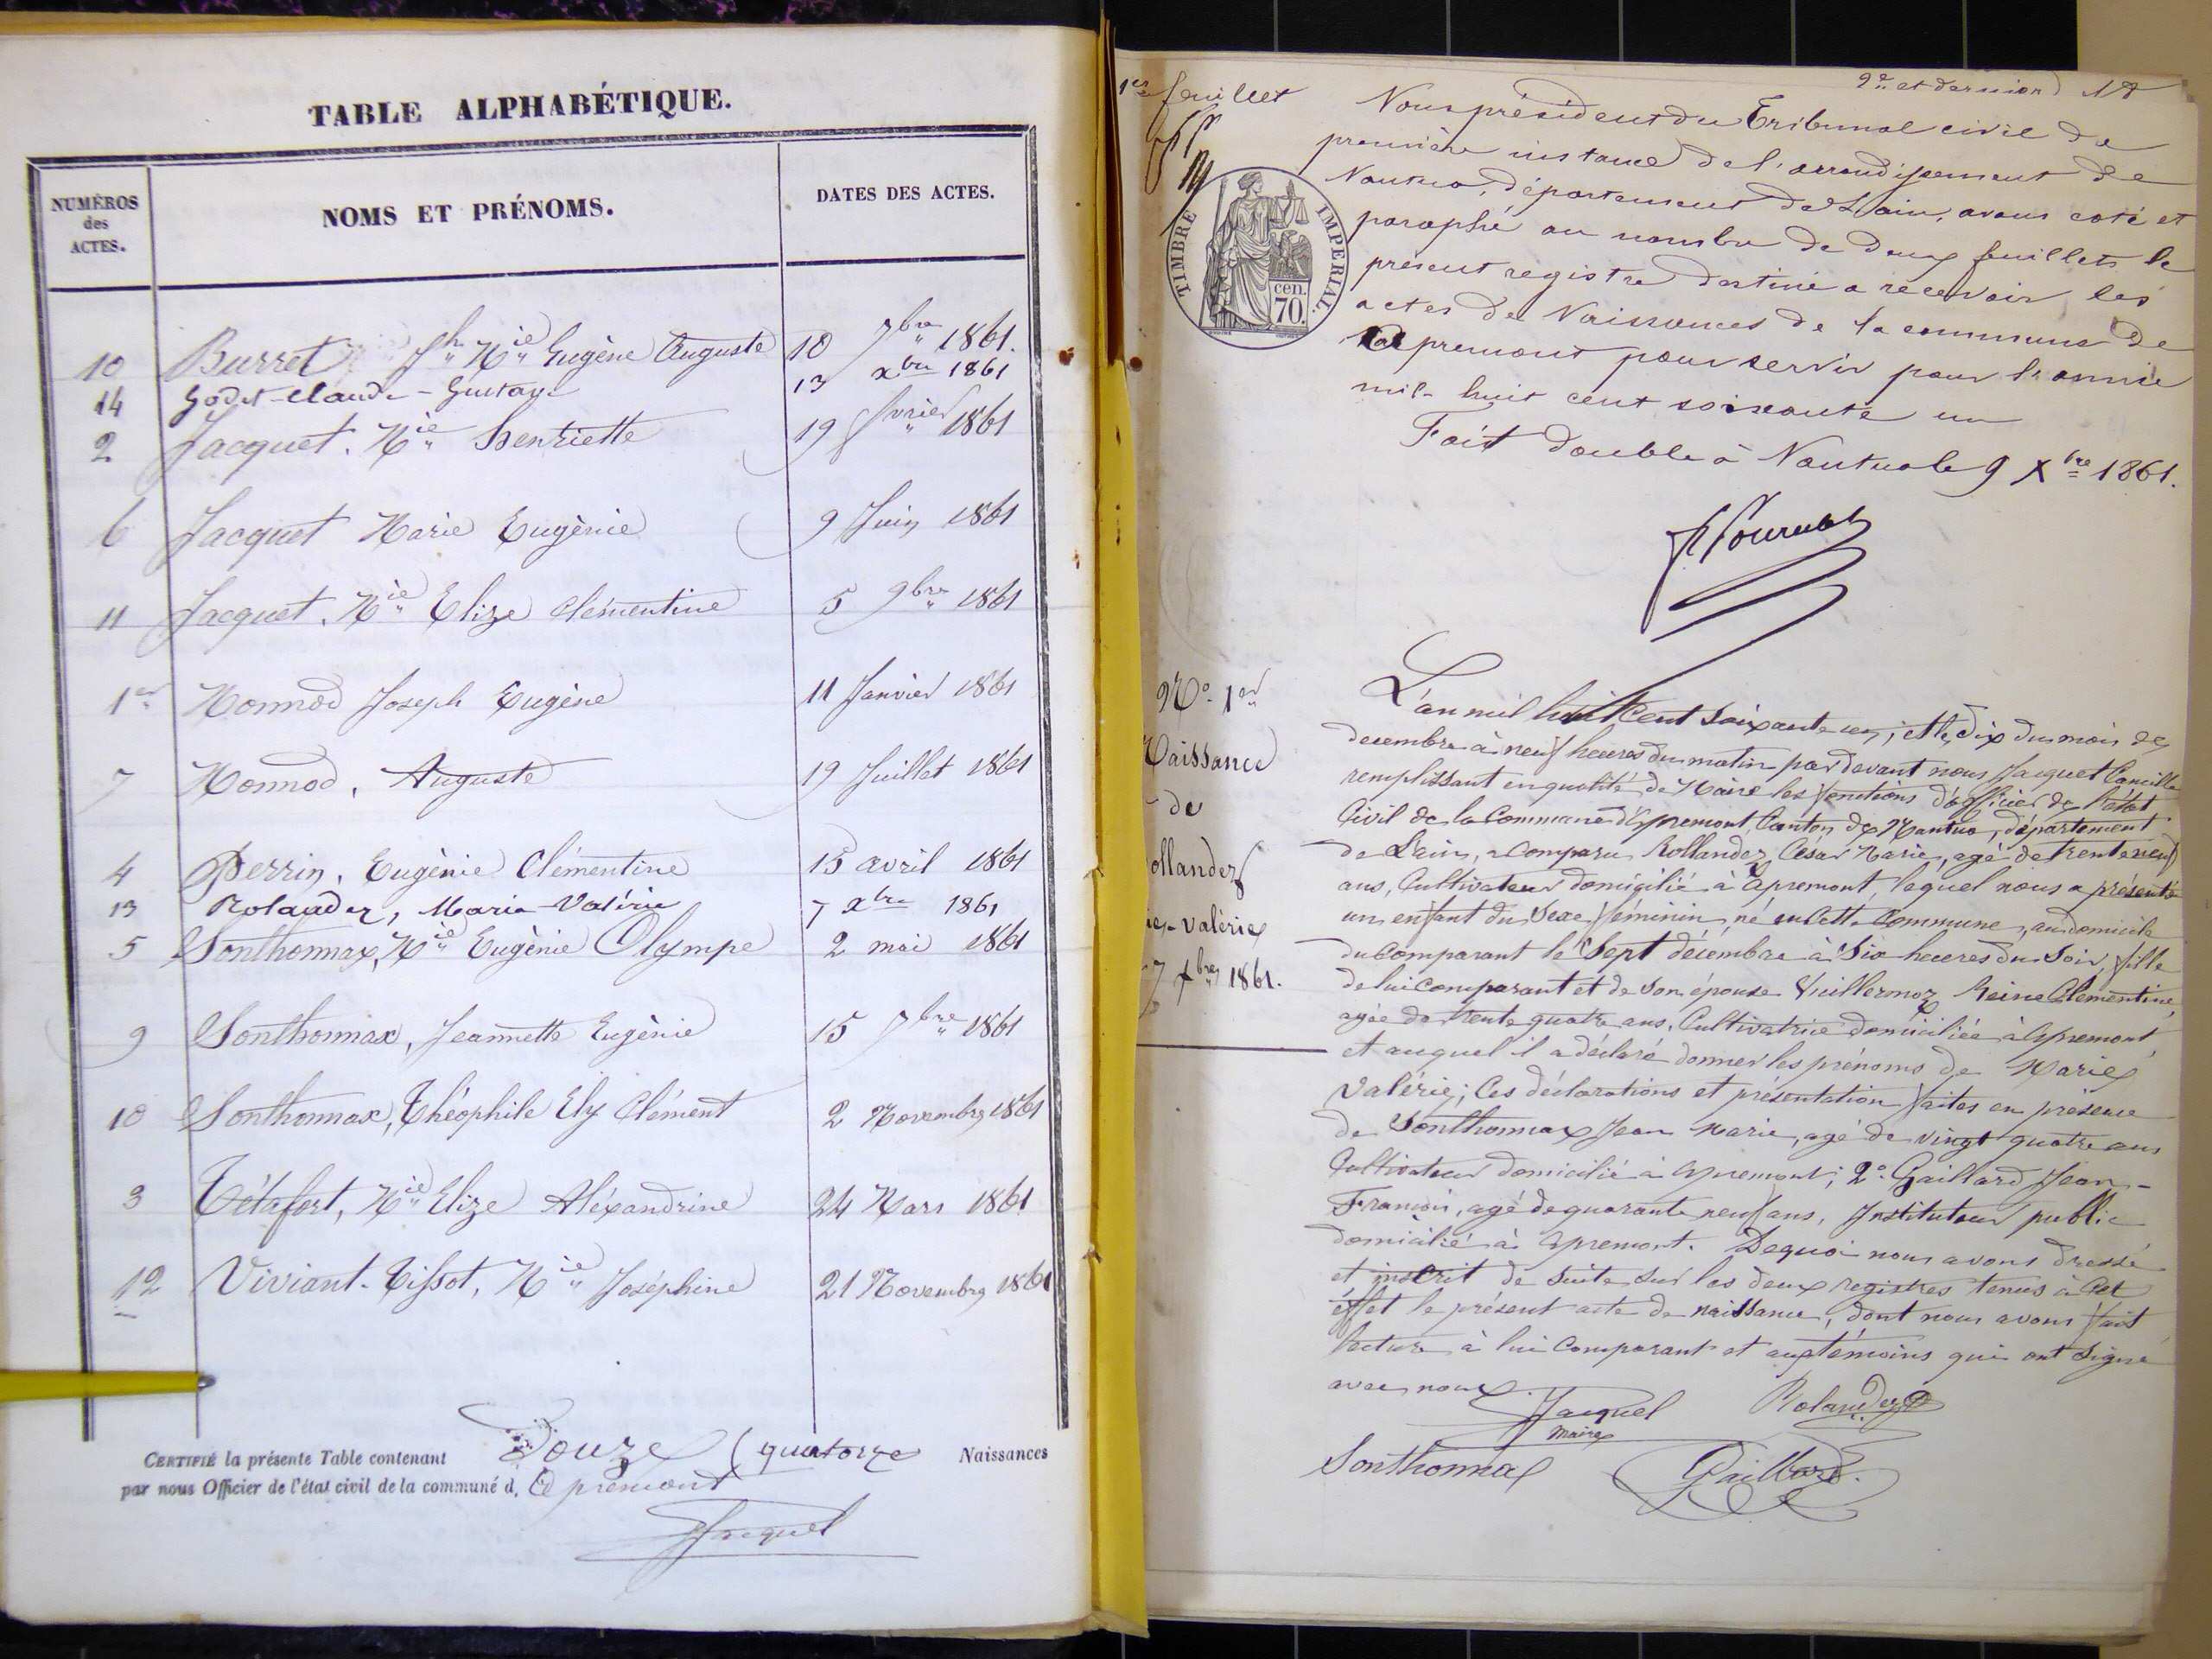 TABLE ALPHABÉTIQUE.
NUMÉROS des ACTES.
NOMS ET PRÉNOMS.
DATES DES ACTES.
10 Burret Jh Mie Eugène Auguste 10 7bre 1861.
14 Godet-Claude-Gustave 13 xbre 1861
2 Jacquet. Mie Henriette 19 fvrier 1861
6 Jacquet Marie Eugènie 9 Juin 1861
11 Jacquet. Mie Elize Clémentine 5 9bre 1861
1er Monnod Joseph Eugène 11 Janvier 1861
7 Monnod, Auguste 19 Juillet 1861
4 Perrin, Eugènie Clémentine 15 avril 1861
13 Rolandez, Marie-Valérie 7 xbre 1861
5 Sonthonnax, Mie Eugènie Olympe 2 mai 1861
9 Sonthonnax, Jeannette Eugènie 15 7bre 1861
10 Sonthonnax, Théophile Ely Clément 2 Novembre 1861
3 Tétafort, Mie Elize Aléxandrine 24 Mars 1861
12 Viviant-Tissot, Mie Joséphine 21 Novembre 1861
CERTIFIÉ la présente Table contenant Douze (quatorze Naissances
par nous Officier de l'état civil de la commune d, Apremont
Jacquet
1er feuillet
2e et dernier 18
Nous président du Tribunal civil de
première instance de l'arrondissement de
Nantua, département de L'ain, avons coté et
paraphé au nombre de deux feuillets le
présent registre destiné a recevoir les
actes de Naissances de la commune de
Apremont pour servir pour l'année
mil huit cent soixante un
Fait double à Nantua le 9 Xbre 1861.
TIMBRE IMPÉRIAL.
cen. 70.
No. 1er
Naissance
de
ollandez
ie-valérie
7 xbre 1861.
L'an mil huit cent soixante un, et le dix du mois de
decembre à neuf heures du matin par devant nous Jacquet Camille
remplissant en qualité de Maire les fonctions d'officier de l'état
Civil de la Commune d'Apremont, Canton de Nantua, département
de L'ain, a comparu Rollandez César Marie, agé de trente neuf
ans, Cultivateur domicilié à Apremont, lequel nous a présenté
un enfant du Sexe féminin, né en cette Commune, au domicile
du Comparant le Sept décembre à Six heures du Soir, fille
de lui comparant et de son épouse Vuillermoz Reine Clementine,
agée de trente quatre ans, Cultivatrice domiciliée à Apremont
et auquel il a déclaré donner les prénoms de Marie
Valérie; Ces déclarations et présentation faites en présence
de Sonthonnax Jean Marie, agé de vingt quatre ans
Cultivateur domicilié à Apremont; 2o. Gaillard Jean-
François, agé de quarante neuf ans, Instituteur public
domicilié à Apremont. De quoi nous avons dressé
et inscrit de suite sur les deux registres tenus à Cet
éffet le présent acte de naissance, dont nous avons fait
lecture à lui Comparant et aux témoins qui ont signé
avec nous.
Jacquet
Maire
Rolandez
Sonthonnax
Gaillard